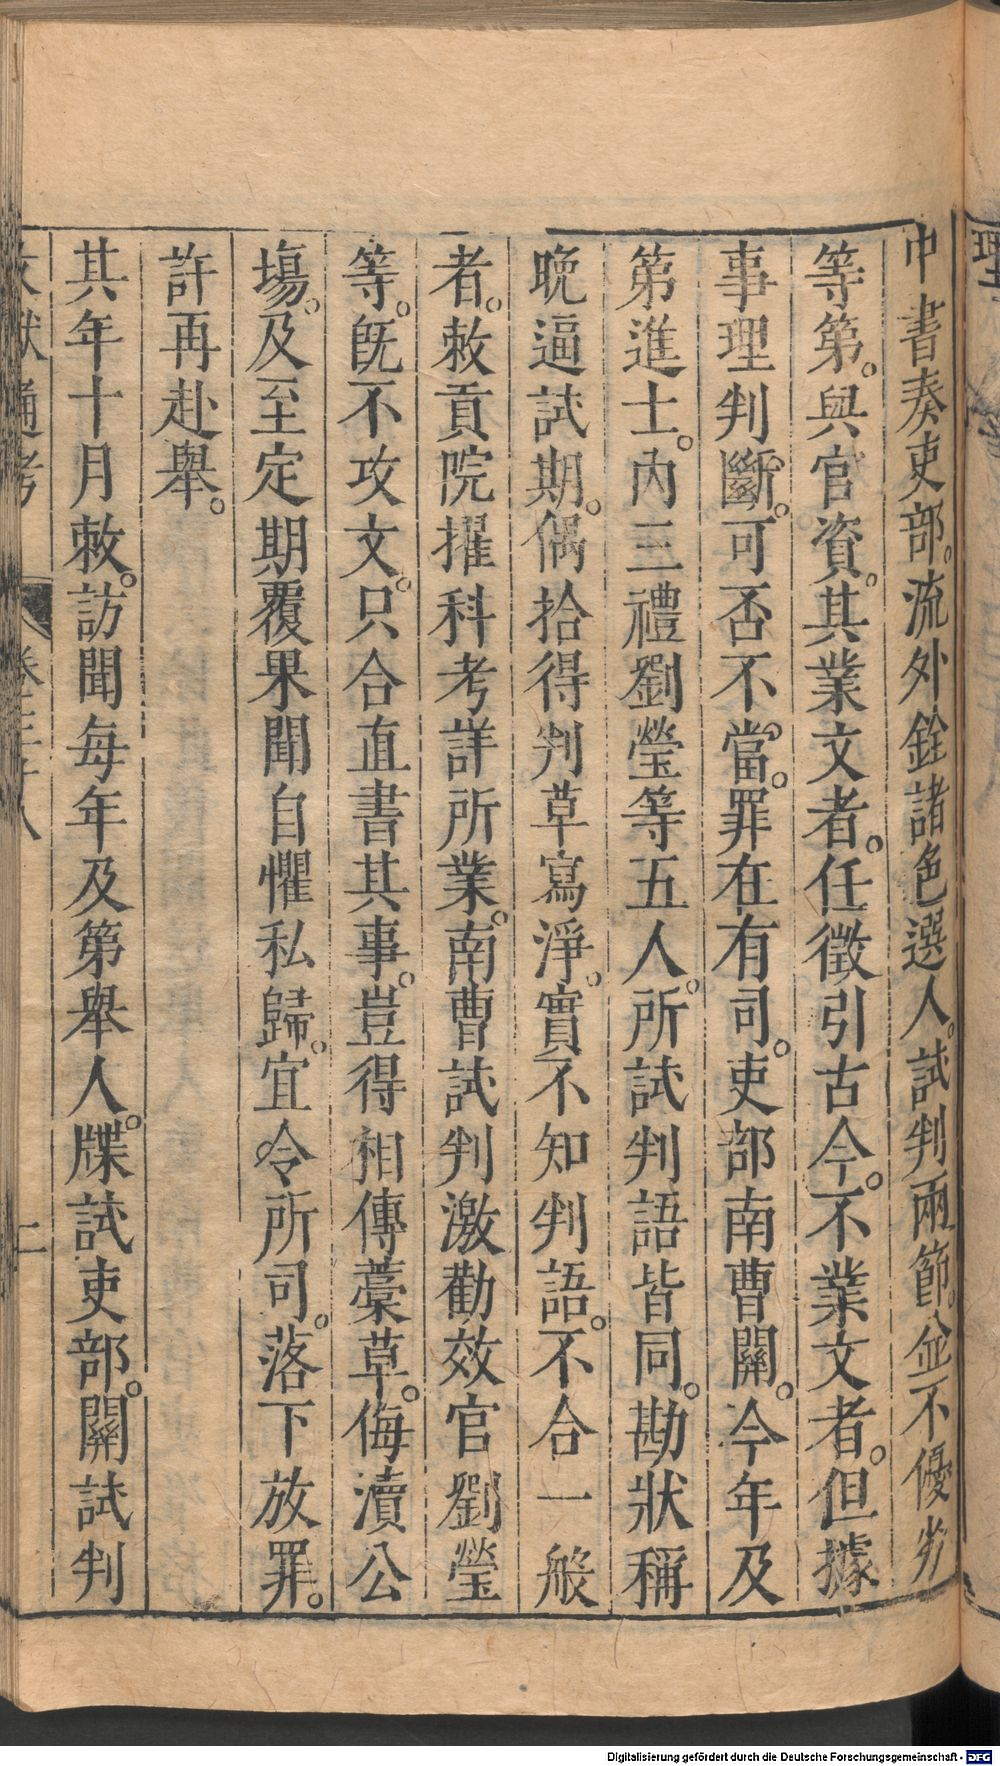 中書奏吏部。流外銓諸色選人。試判兩節。並不優劣
等第。與官資。其業文者。任徵引古今。不業文者。但據
事理判斷。可否不當。罪在有司。吏部南曹關。今年及
第進士。內三禮劉瑩等五人。所試判語皆同。勘狀稱
晚逼試期。偶拾得判草寫淨。實不知判語。不合一般
者。敕貢院擢科考詳所業。南曹試判激勸效官劉瑩
等。旣不攻文。只合直書其事。豈得相傳藁草。侮瀆公
場。及至定期覆果聞自懼私歸。宜令所司。落下放罪。
許再赴舉。
其年十月敕。訪聞每年及第舉人。牒試吏部。關試判
文獻通考 卷三十八 二
理
Digitalisierung gefördert durch die Deutsche Forschungsgemeinschaft - DFG